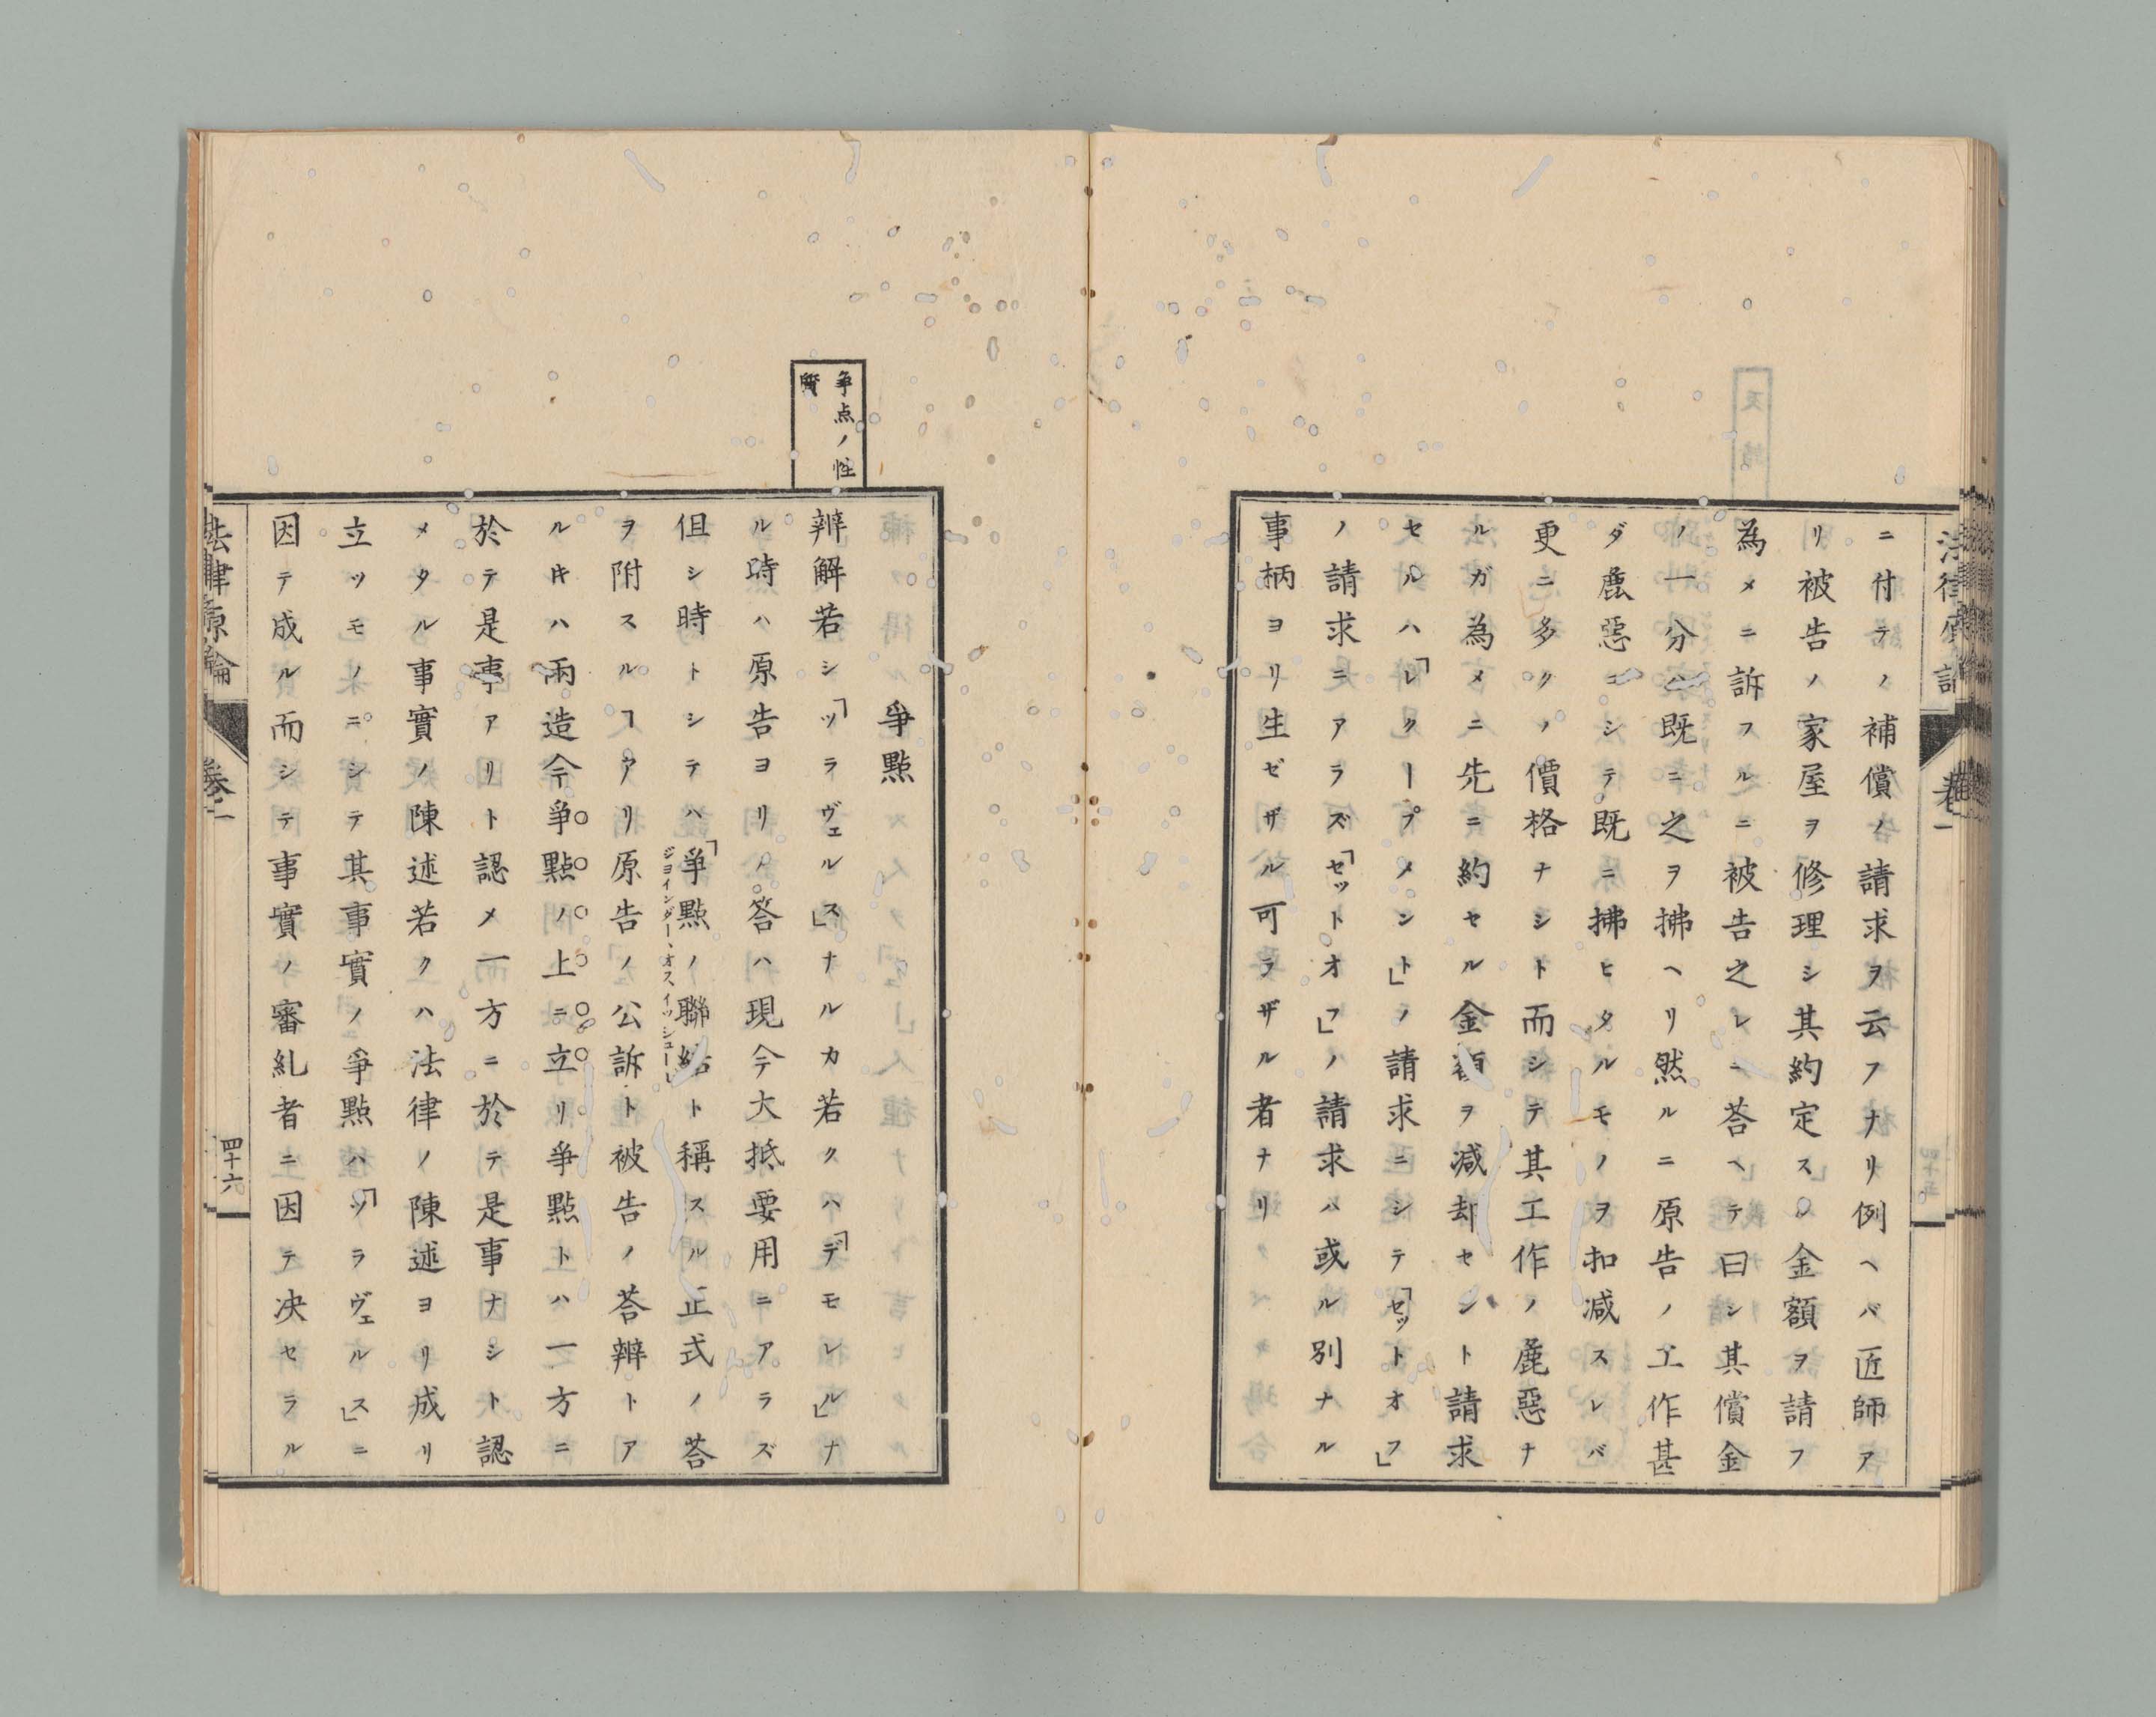 ニ付テノ補償ノ請求ヲ云フナリ例ヘバ匠師ア
リ被告ノ家屋ヲ修理シ其約定ス金額ヲ請フ
為メニ訴フルニ被告之レニ荅ヘテ曰シ其償金
ノ一分ハ既ニ之ヲ拂ヘリ然ルニ原告ノ工作甚
ダ麁惡ニシテ既ニ拂ヒタルモノヲ扣减スレバ
更ニ多クノ價格ナシト而シテ其工作ノ麁惡ナ
ルガ為メニ先ニ約セル金額ヲ减却セント請求
セルハ「レクープメント」ノ請求ニシテ「セットオフ」
ノ請求ニアラズ「セットオフ」ノ請求ハ或ル別ナル
事柄ヨリ生ゼザル可ラザル者ナリ
争点ノ性
質
爭點
辨解若シ「ツラヴェルス」ナルカ若クハ「デモレル」ナ
ル時ハ原告ヨリノ答ハ現今大抵要用ニアラズ
但シ時トシテハ「爭點ノ聯結ト稱スル正式ノ荅
ジョインダー、オス、イッシュー」
ヲ附スルヿアリ原告ノ公訴ト被告ノ荅辨トア
ルキハ兩造今爭點ノ上ニ立リ爭點トハ一方ニ
於テ是事アリト認メ一方ニ於テ是事ナシト認
メタル事實ノ陳述若クハ法律ノ陳述ヨリ成リ
立ツモノニシテ其事實ノ爭點ハ「ツラヴェルス」ニ
因テ成ル而シテ事實ノ審糺者ニ因テ决セラル
法律原論 卷二 四十六